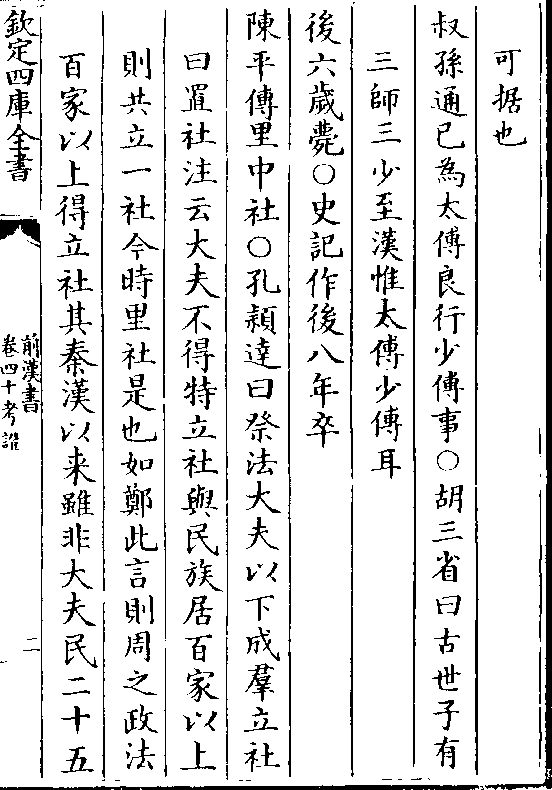 可据也
叔孫通已為太傅良行少傅事○胡三省曰古世子有
三師三少至漢惟太傅少傅耳
後六歲薨○史記作後八年卒
陳平傳里中社○孔頴達曰祭法大夫以下成羣立社
曰置社注云大夫不得特立社與民族居百家以上
則共立一社今時里社是也如鄭此言則周之政法
百家以上得立社其秦漢以来雖非大夫民二十五
欽定四庫全書
前漢書
卷四十考證
二